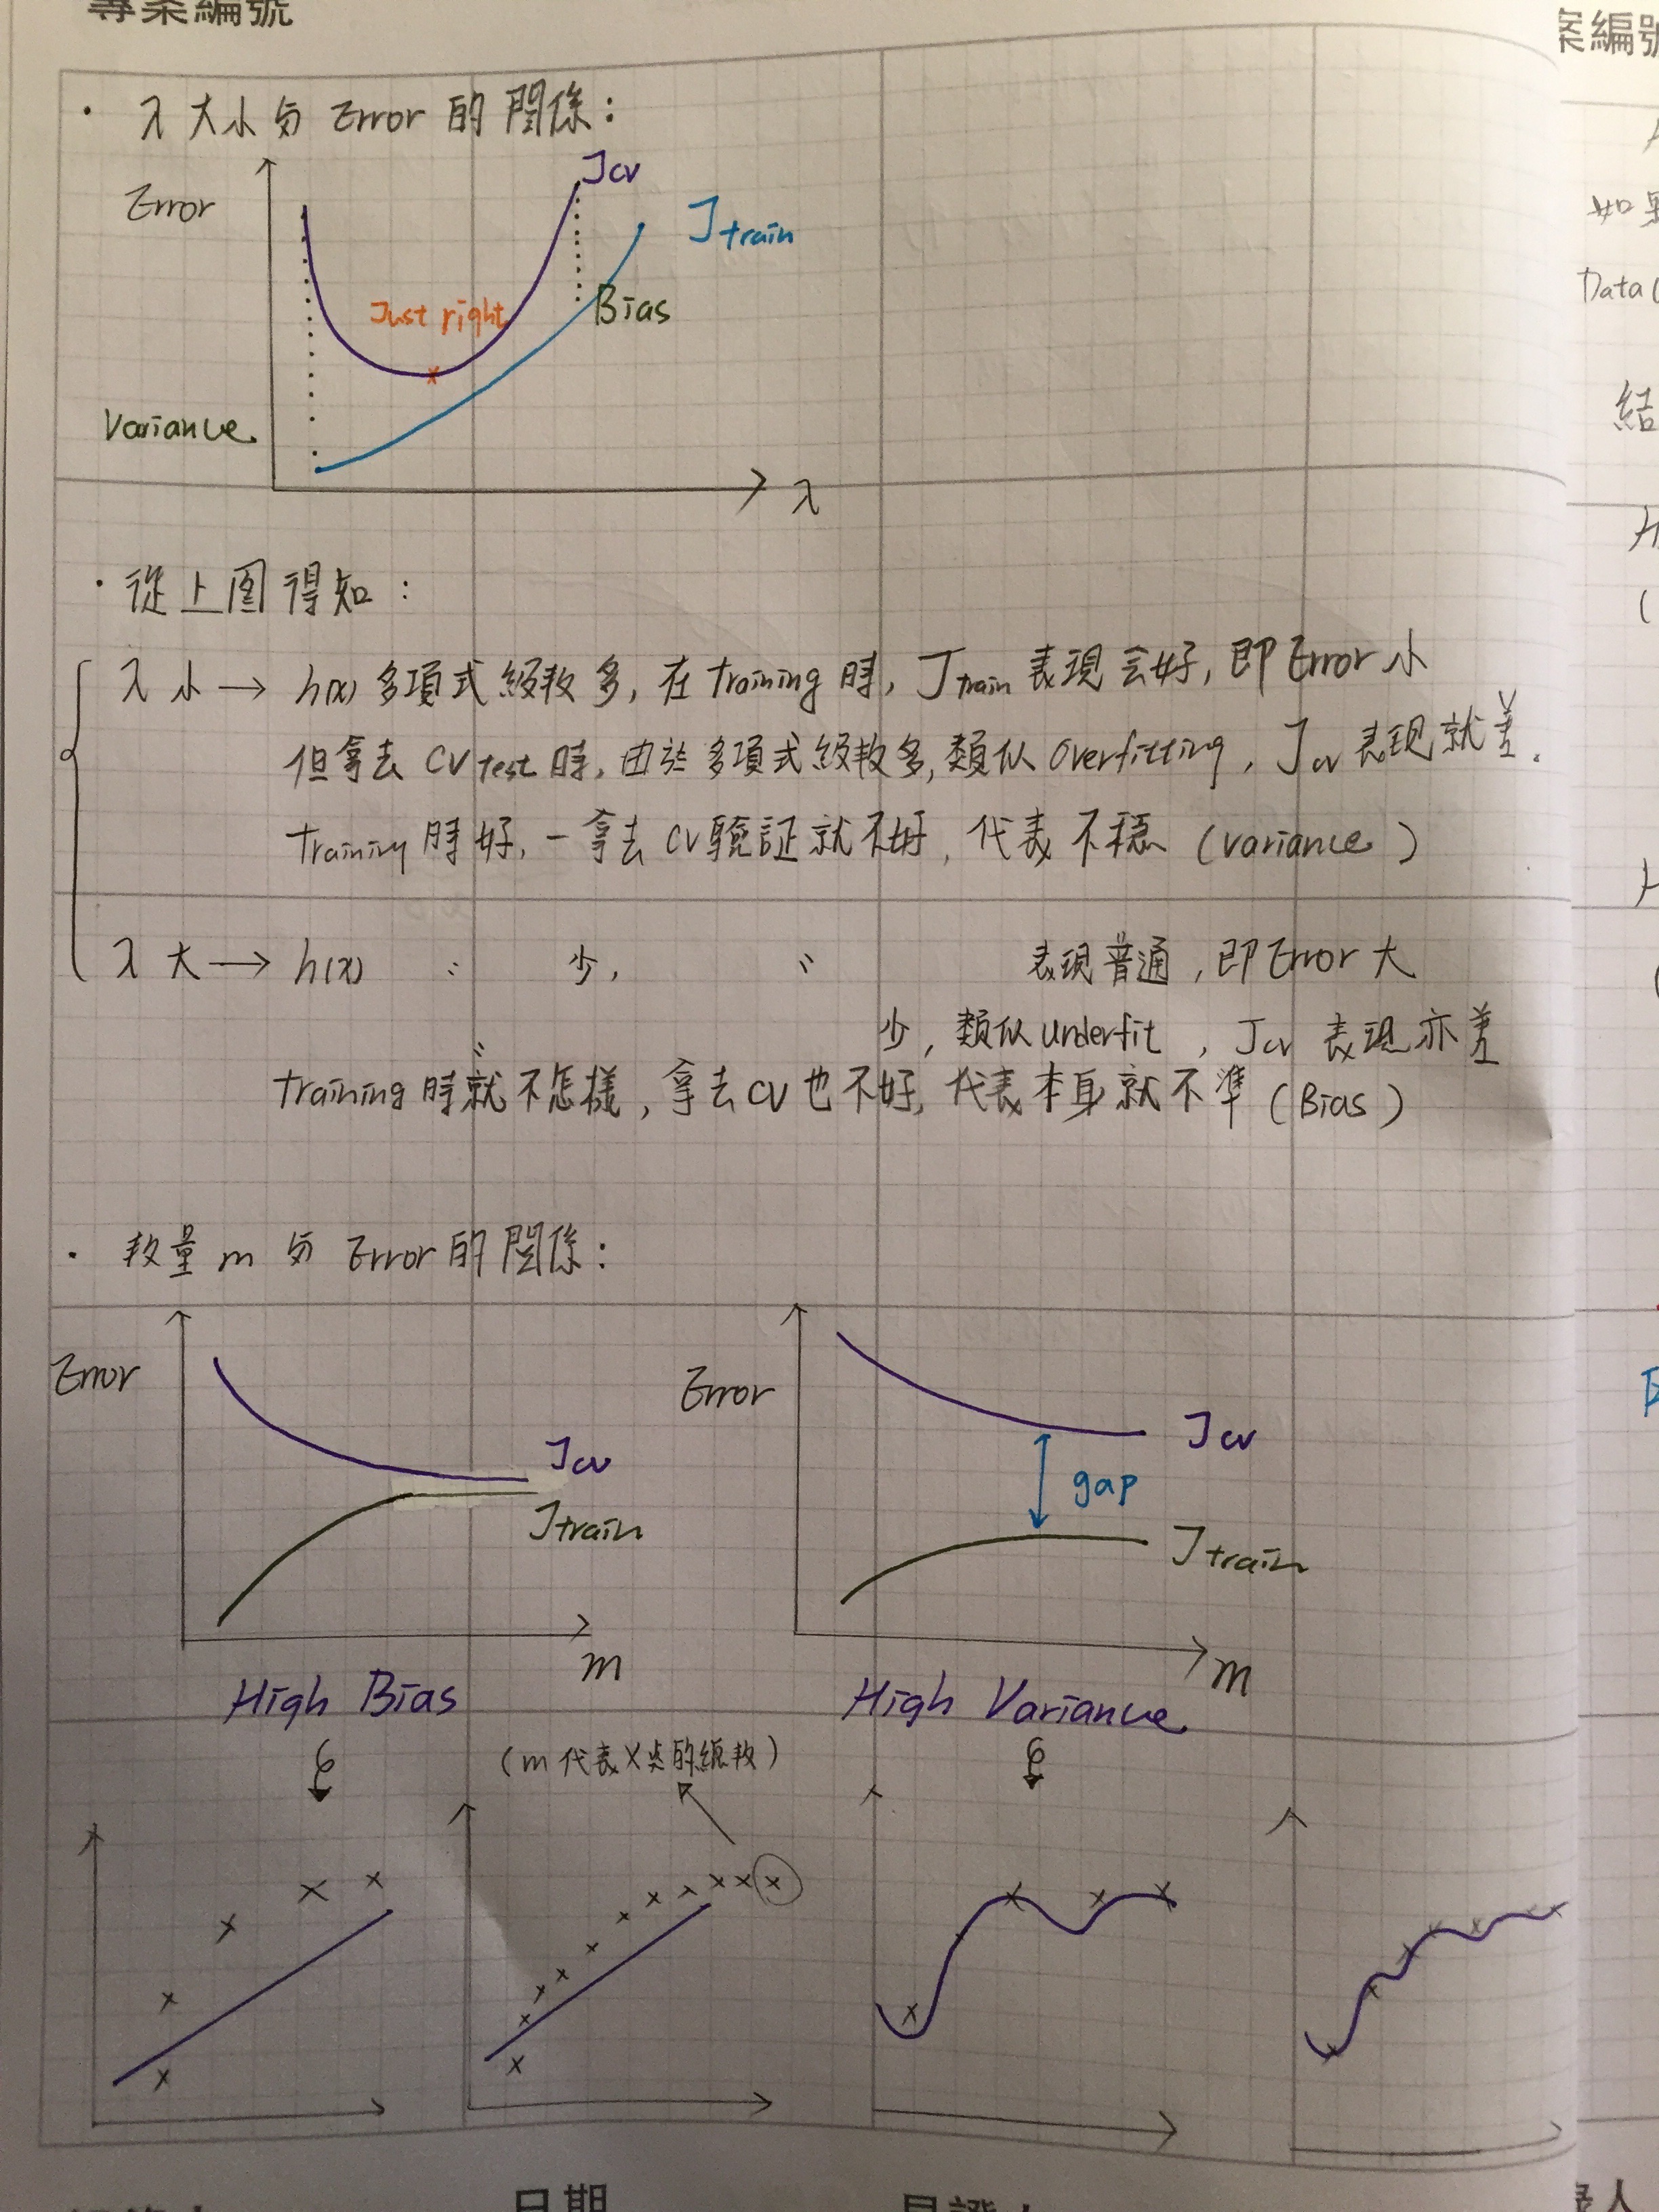 專案編號
案編號
· λ 大小與 Error 的關係：
Error
Jcv
Jtrain
Just right
Bias
Variance
λ
· 從上圖得知：
λ 小 → h(x) 多項式級數多, 在 training 時, Jtrain 表現會好, 即 Error 小
但拿去 CV test 時, 由於多項式級數多, 類似 Overfitting, Jcv 表現就差.
Training 時好, 一拿去 CV 驗証就不好, 代表不穩 (variance)
λ 大 → h(x) 〃 少, 〃 表現普通, 即 Error 大
〃 少, 類似 underfit, Jcv 表現亦差
Training 時就不怎樣, 拿去 CV 也不好, 代表本身就不準 (Bias)
· 數量 m 與 Error 的關係：
Error
Jcv
Jtrain
m
Error
Jcv
gap
Jtrain
m
High Bias
High Variance
(m 代表 X 點的總數)
如果
Data (
結
日期